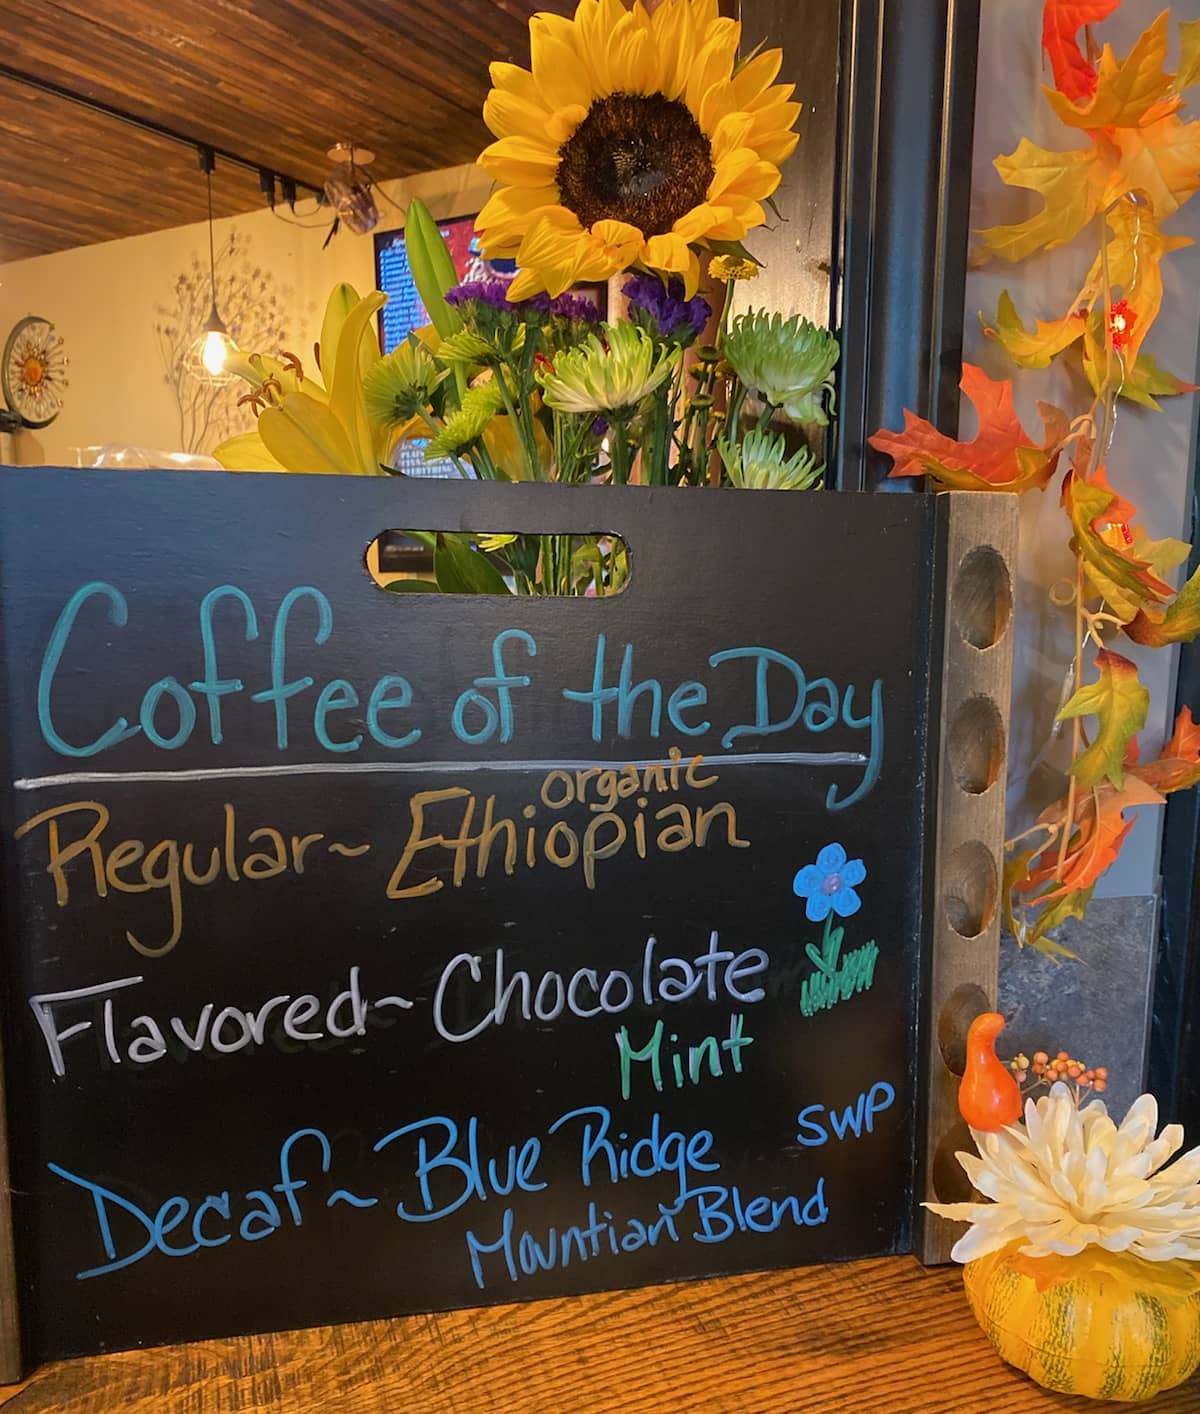 Coffee of the Day
organic
Regular~ Ethiopian
Flavored~ Chocolate
Mint
Decaf~ Blue Ridge SWP
Mountian Blend